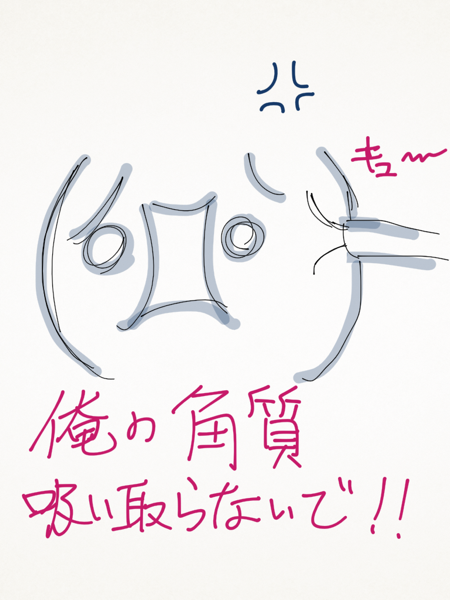 キュ〜
俺の角質
吸い取らないで!!